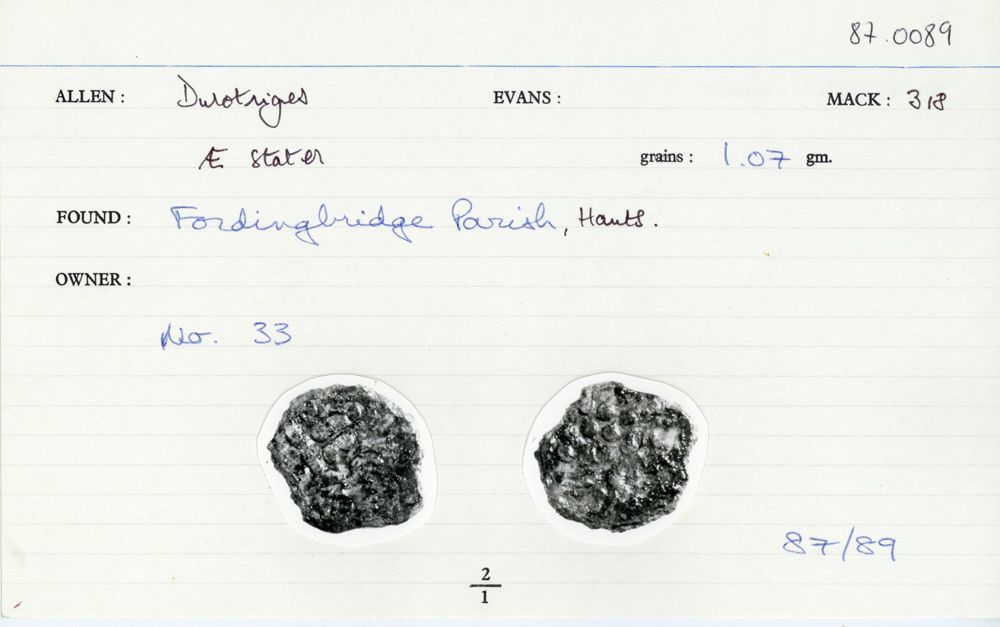 87.0089
ALLEN : Durotriges EVANS : MACK : 318
Æ Stater grains : 1.07 gm.
FOUND : Fordingbridge Parish, Hants.
OWNER :
No. 33
87/89
2
1